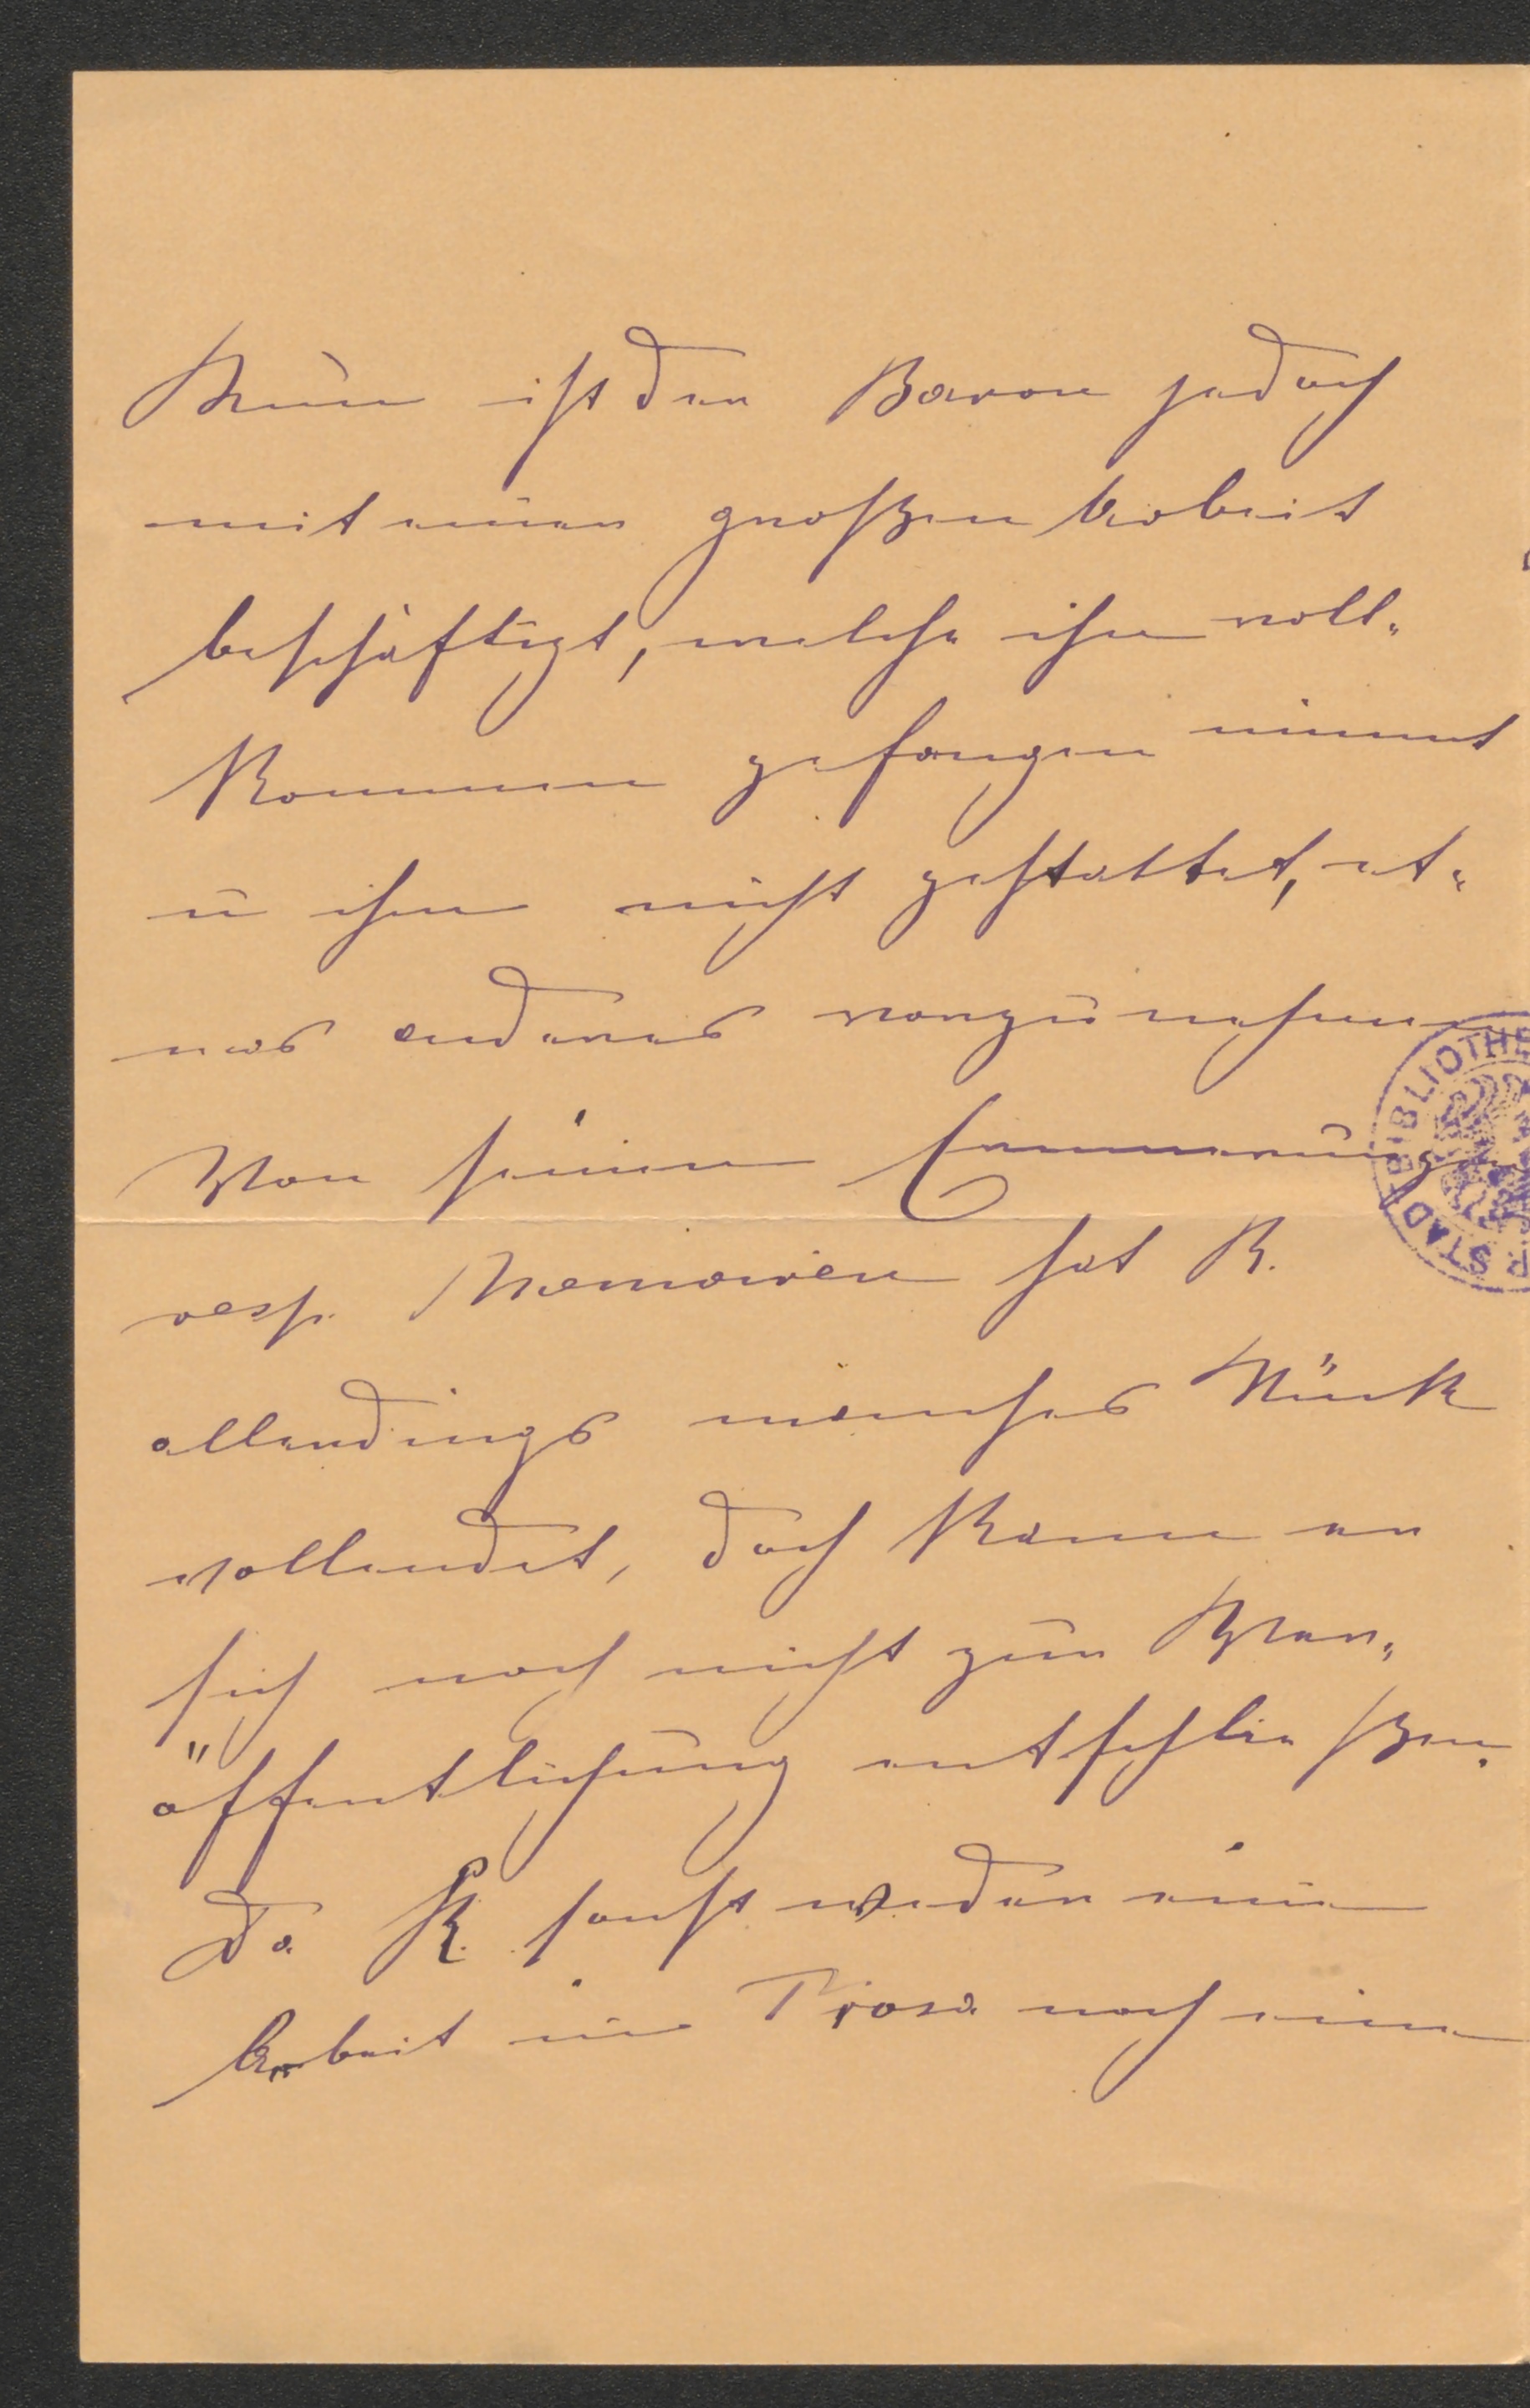 Nun ist der Baron jedoch
mit einer großen Arbeit
beschäftigt, welche ihn voll-
kommen gefangen nimmt
u ihm nicht gestattet, et-
was anderes vorzunehmen
Von seinen Erinnerungen
resp. Memoiren hat R.
allerdings manches Stück
vollendet, doch kann er
sich noch nicht zur Ver-
öffentlichung entschließen.
Da R. sonst weder eine
Arbeit in Prosa noch eine
BIBLIOTHE
STAD